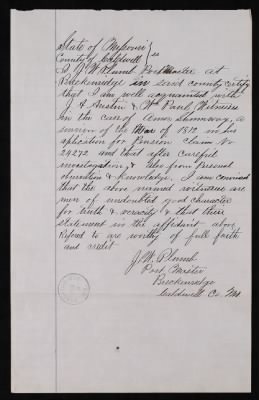 State of Missouri }
County of Caldwell } ss
I J. W. Plumb Post Master at
Breckenridge in said county certify
that I am well acquainted with
J. A. Austin & Wm Paul, Witnesses
in the case of Amos Shumway, a
survivor of the War of 1812 in his
application for Pension claim No
24272 and that after careful
investigation, & also from personal
observation & knowledge, I am convinced
that the above named witnesses are
men of undoubted good character
for truth & veracity & that their
statement in the affidavit above
refered to are worthy of full faith
and credit
J. W. Plumb
Post Master
Breckenridge
Caldwell Co. Mo